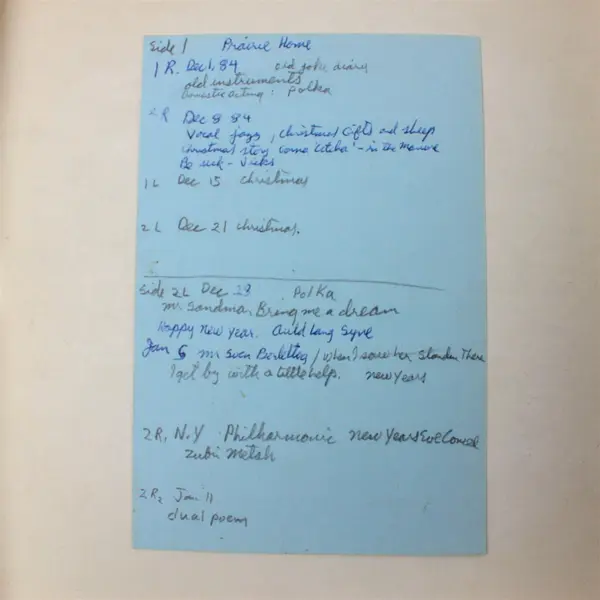 Side 1 Prairie Home
1 R. Dec 1, 84 old joke diary
old instruments
Domestic acting: Polka
2 R Dec 8 84
Vocal jazz, Christmas Gifts and sheep
Christmas story - in the Manure
Be sick - Vicks
1 L Dec 15 Christmas
2 L Dec 21 Christmas.
Side 2L Dec 29 Polka
Mr Sandman Bring me a dream
Happy New Year. Auld Lang Syne
Jan 5 Mr Sven / When I saw her Standin There
I get by with a little help. New Years
2R, N.Y Philharmonic New Years Eve Concert
Zubin Metah
2R2 Jan 11
dual poem